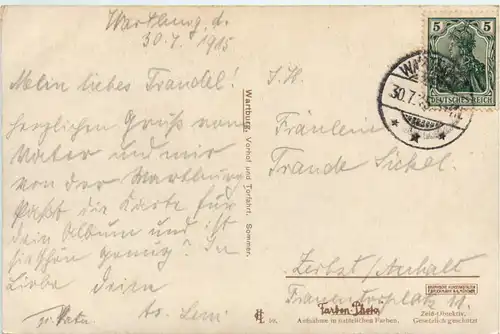 Wartburg, d.
30.7.1915
Mein liebes Traudel!
Herzlichen Gruß vom
Vater und mir
von der Wartburg
Paßt die Karte für
dein Album und ist
sie schön genug? In
Liebe deine
Wartburg, Vorhof und Torfahrt. Sommer.
5 5
DEUTSCHES REICH
30.7.15
S. H.
Fräulein
Traude Sickel.
Zerbst/Anhalt
11.
Farben-Photo
Aufnahme in natürlichen Farben.
Zeit-Docktiv.
Gesetzlich geschützt